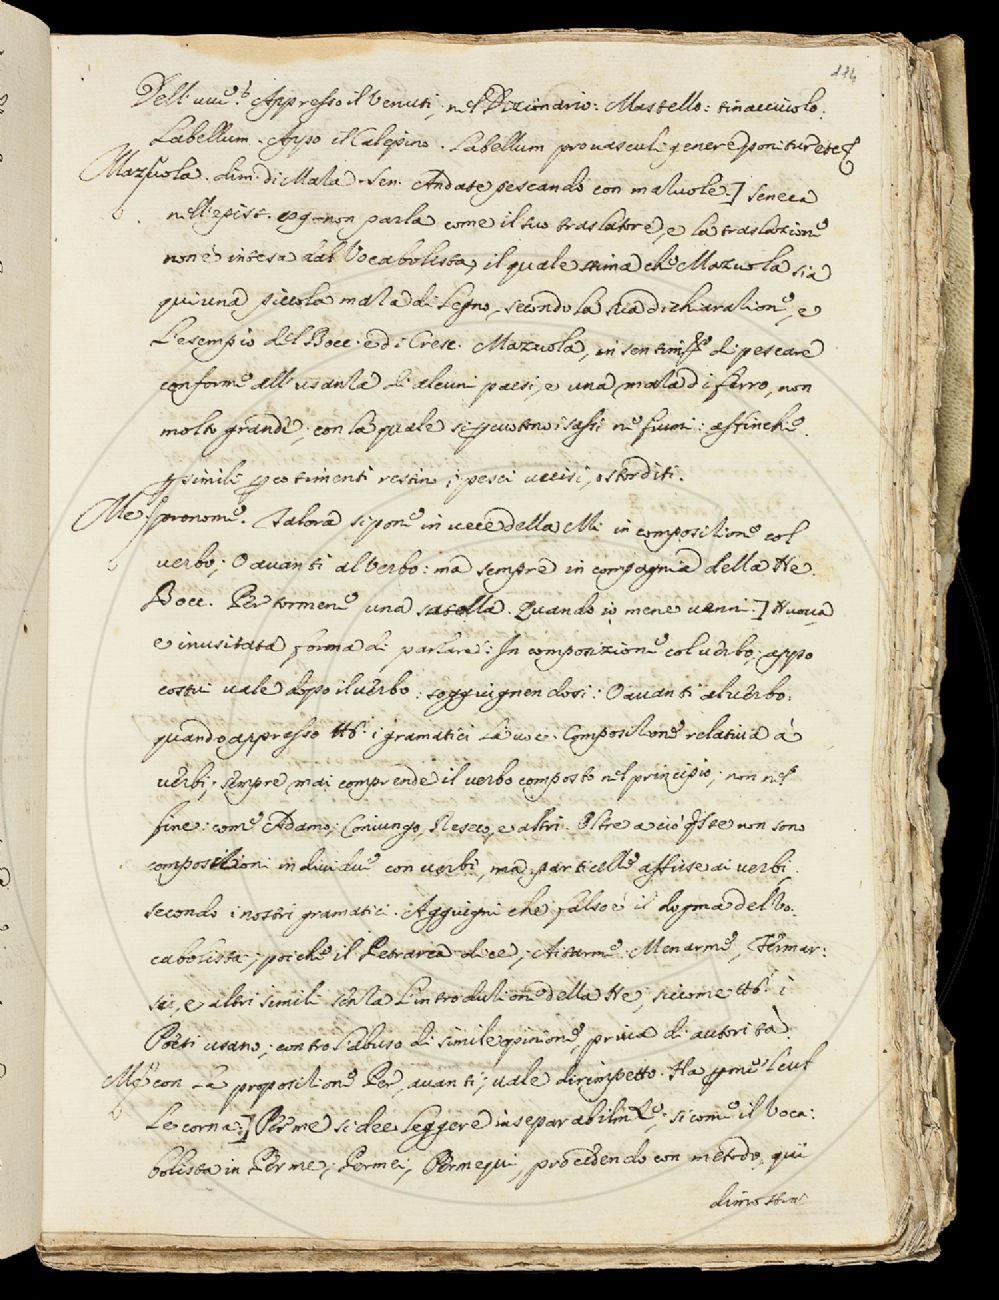 116
Dell'uue. Appresso il Venuti, nel Dizionario: Mastello: tinacciuolo:
Labellum. Appo il Calepino. Labellum pro vasculi genere ponitur etc.
Mazzuola. dim. di Maza. Sen. Andate pescando con mazuole.] Seneca
nell'epist. 89 non parla come il suo traslatore, e la traslazione
non è intesa dal Vocabolista, il quale stima che Mazuola sia
qui una piccola maza di Legno, secondo la sua dichiarazione, e
L'esempio del Bocc. e di Cresc. Mazuola, in sentimento di pescare
conforme all'usanza di alcuni paesi, e una maza di ferro, non
molto grande, con la quale si percuotono i sassi ne fiumi: affinche
per simili percotimenti restino i pesci uccisi, o storditi.
Me. pronome. Talora si pone in vece della Mi in composizione col
verbo; O avanti al Verbo: ma sempre in compagnia della Ne.
Bocc. Per tormene una satolla. Quando io mene venni.] Nuova
e inusitata forma di parlare: In composizione col verbo; appo
costui vale dopo il verbo; soggiugnendosi: O avanti al verbo:
quando appresso tutti i gramatici La voce Composizione relativa à
verbi; sempre mai comprende il verbo composto nel principio; non nel
fine: come Adamo; Coniungo, Reseco, e altri. Oltre a ciò queste non sono
composizioni individue con verbi, ma particelle affisse ai verbi
secondo i nostri gramatici. Aggiugni che falso è il dogma del Vo:
cabolista; poiche il Petrarca dice; Aitarme. Menarme, Fermar:
si, e altri simili senza L'introduzione della Ne; siccome tutti i
Poeti usano; contro l'abuso di simile opinione, priva di autorità.
Me con La proposizione Per, avanti; vale dirimpetto. Ha per me
Le corna.] Per me si dee Leggere inseparabilmente; si come il Voca:
bolista in Per me; Permei, Permequi, procedendo con metodo, qui
dimostra